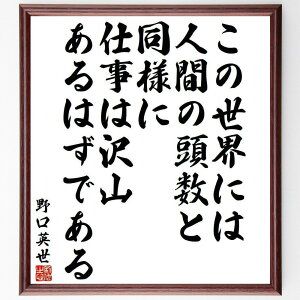 この世界には
人間の頭数と
同様に
仕事は沢山
あるはずである
野口英世